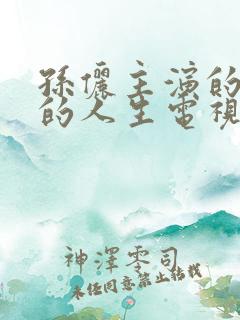 孫儷主演的
的人生電視
神澤零司
未經同意禁止轉載